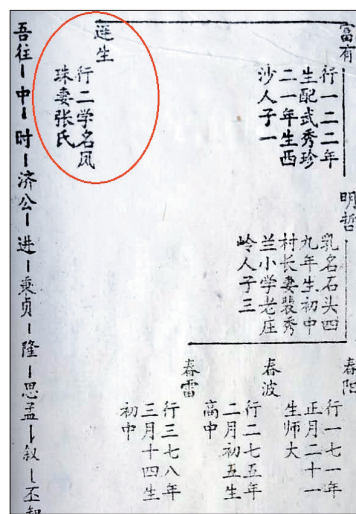 富有
行一二二年
生配武秀珍
二一年生西
沙人子一
生
行二学名凤
珠妻张氏
明哲
乳名石头四
九年生初中
村长妻裴秀
兰小学老庄
岭人子三
春阳
行一七一年
正月二十一
生师大
春波
行二七五年
二月初五生
高中
春雷
行三七八年
三月十四生
初中
吾往—中—时—济公—进—秉贞—隆—思孟—叙—丕